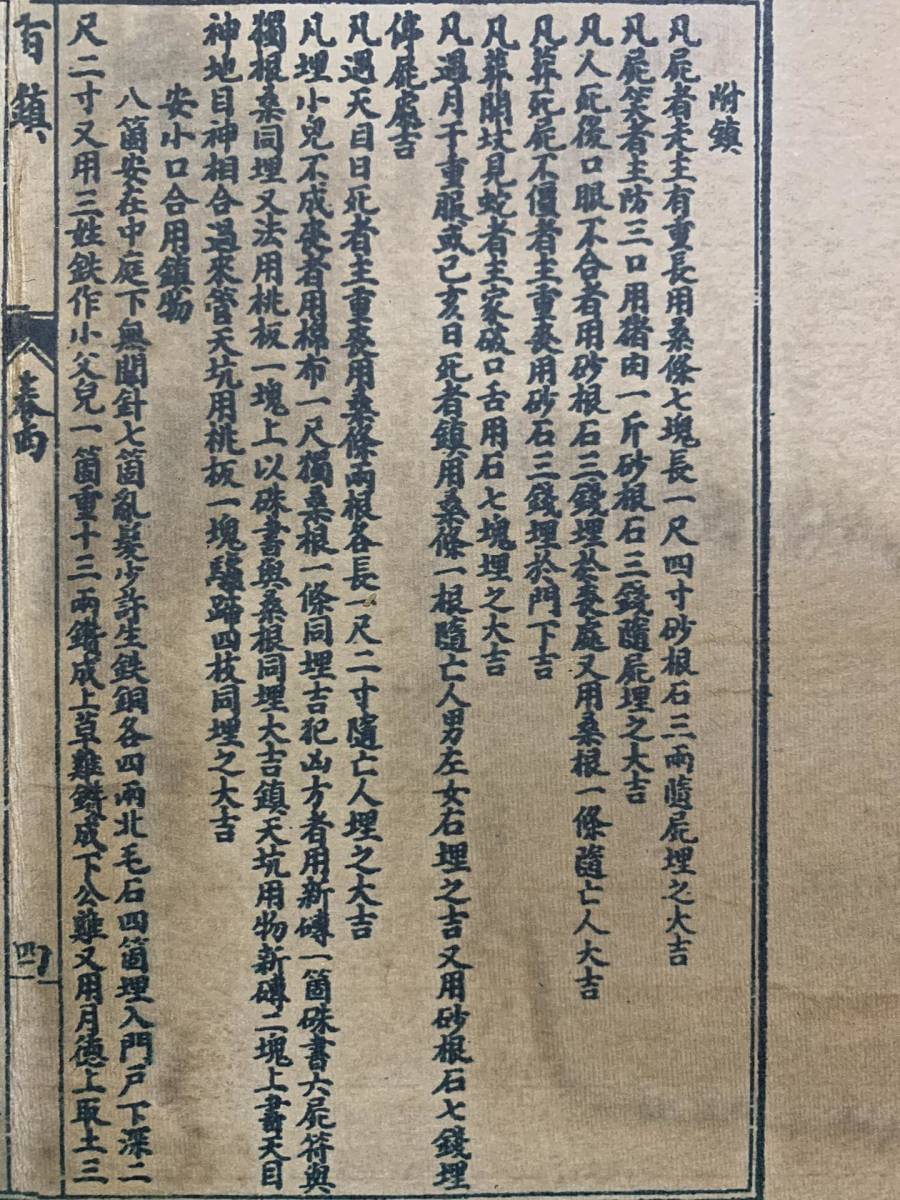 附鎮
凡屍者走主有重長用桑條七塊長一尺四寸砂根石三兩隨屍埋之大吉
凡屍笑者主防三口用猪肉一斤砂根石三錢隨屍埋之大吉
凡人死後口眼不合者用砂根石三錢埋於喪庭又用桑根一條隨亡人大吉
凡葬死屍不僵者主重喪用砂石三錢埋於門下吉
凡葬開坟見蛇者主家破口舌用石七塊埋之大吉
凡遇月干重服或己亥日死者鎮用桑條一根隨亡人男左女右埋之吉又用砂根石七錢埋
停屍處吉
凡遇天目日死者主重喪用桑條兩根各長一尺二寸隨亡人埋之大吉
凡埋小兒不成喪者用棉布一尺獨桑根一條同埋吉犯凶方者用新磚一箇硃書六屍符與
獨根桑同埋又法用桃板一塊上以硃書與桑根同埋大吉鎮天坑用物新磚二塊上書天目
神地目神相合過來管天坑用桃板一塊驢蹄四枝同埋之大吉
安小口合用鎮物
八箇安在中庭下無關針七箇亂髮少許生鉄銅各四兩北毛石四箇埋入門戶下深二
尺二寸又用三姓鉄作小父兒一箇重十三兩鑽成上草雞鑽成下公雞又用月德上取土三
百鎮
卷兩
四